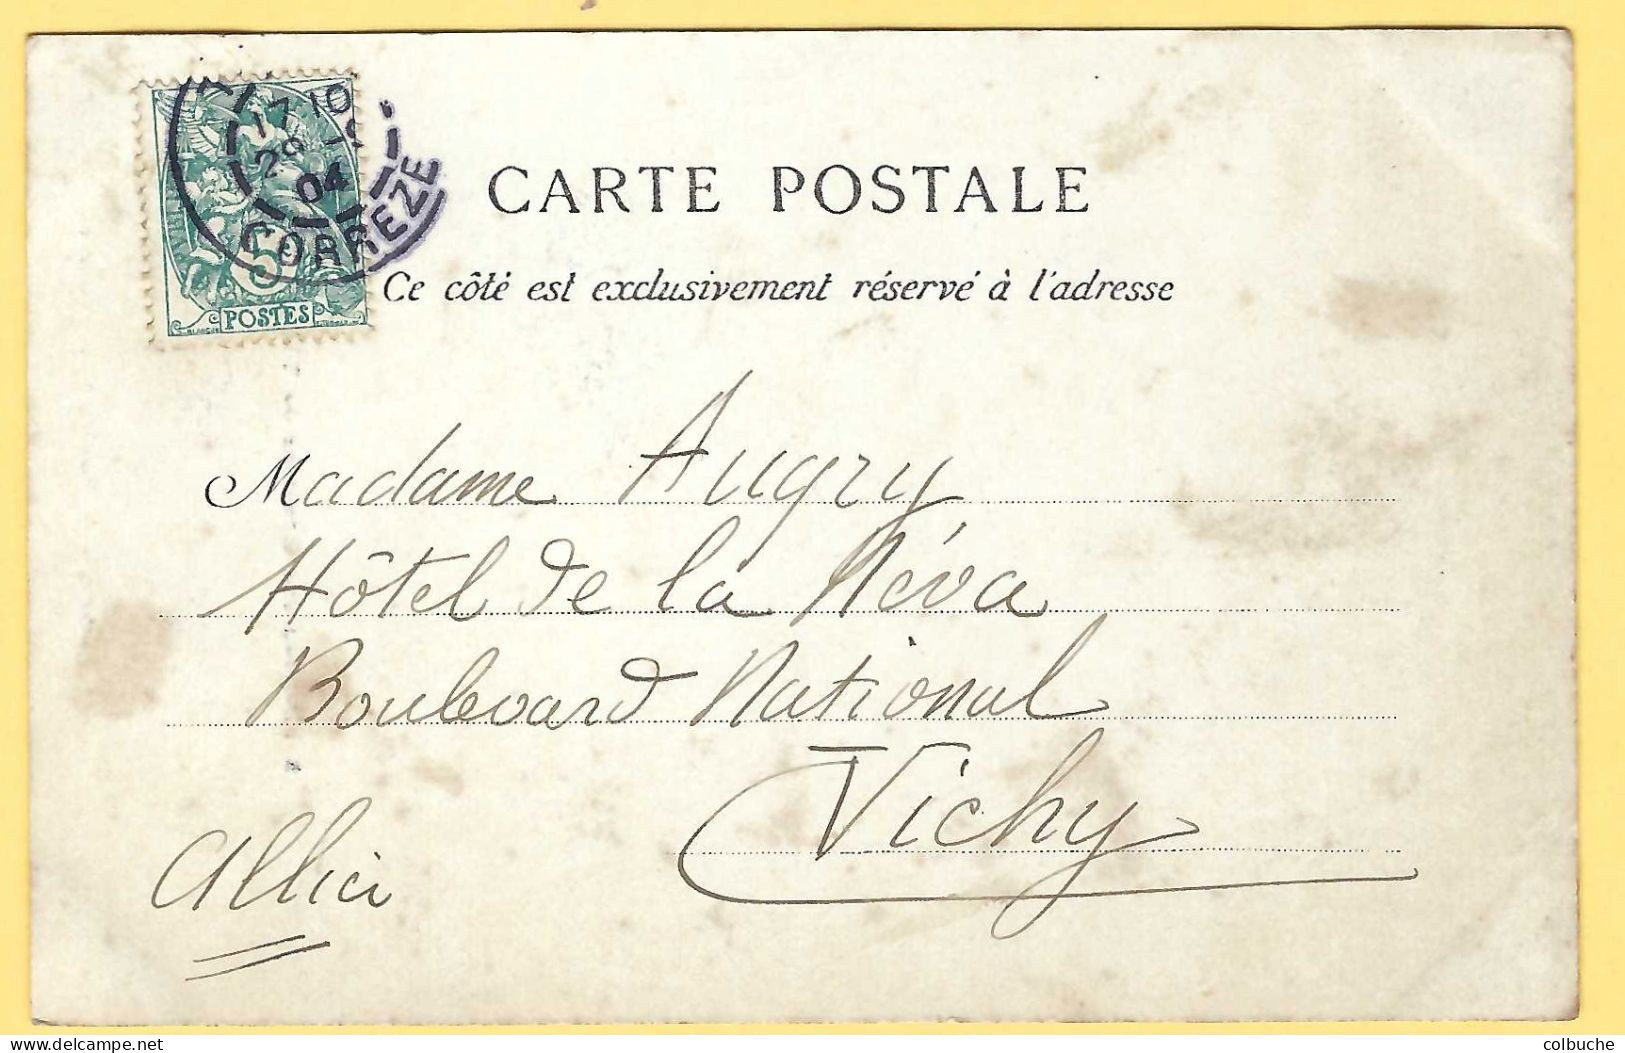 17 10
04
CORREZE
5
POSTES
CARTE POSTALE
Ce côté est exclusivement réservé à l'adresse
Madame Augry
Hôtel de la Néva
Boulevard National
Vichy
Allier
colbuche